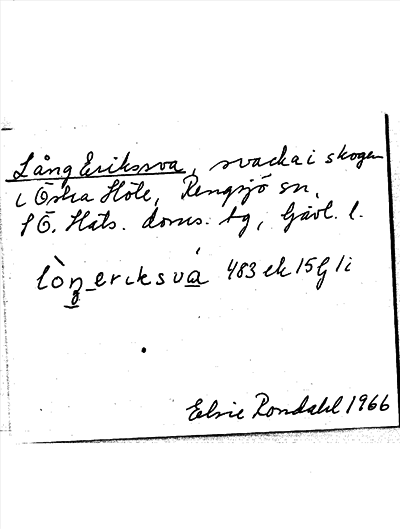 Lång Erikssva, svacka i skogen
i Östra Höle, Rengsjö sn,
SÖ. Häls. doms. tg, Gävl. l.
lòŋ_eriksvá 483 ek 15G 1i
Elsie Rondahl 1966